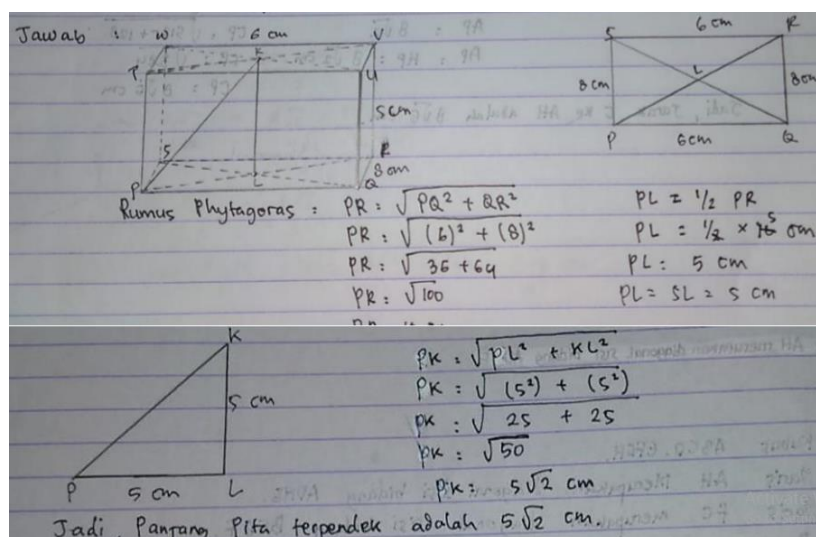 Jawab :
W 6 cm V
T K U
5 cm
S R
8 cm
P L Q
S 6 cm R
8 cm L 8 cm
P 6 cm Q
Rumus Phytagoras : PR : √PQ² + QR²
PR : √(6)² + (8)²
PR : √36 + 64
PR : √100
PL = 1/2 PR
PL = 1/2 × 10 5 cm
PL : 5 cm
PL = SL = 5 cm
K
5 cm
P 5 cm L
PK : √PL² + KL²
PK : √(5²) + (5²)
PK : √25 + 25
PK : √50
PK : 5√2 cm
Jadi, Panjang Pita terpendek adalah 5√2 cm.